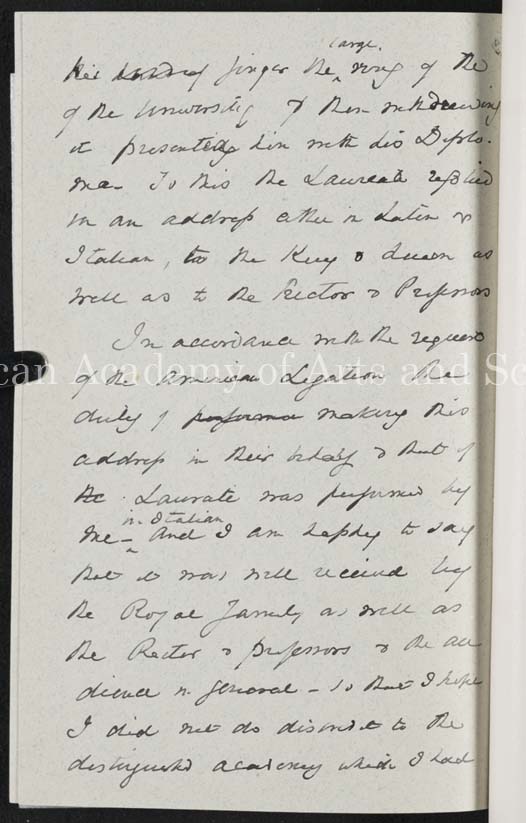 large.
his finger the ring of the
of the University & then withdrawing
it presenting him with his Diplo-
ma - To this the Laureate replied
in an address either in Latin or
Italian, to the King & Queen as
well as to the Rector & Professors
In accordance with the request
of the American Legation the
duty of making this
address in their behalf & that of
the Laurate was performed by
in Italian
me - And I am happy to say
that it was well received by
the Royal Family as well as
the Rector & professors & the au
dience in general - so that I hope
I did not do discredit to the
distinguished academy which I had
can Academy of Arts and Sc